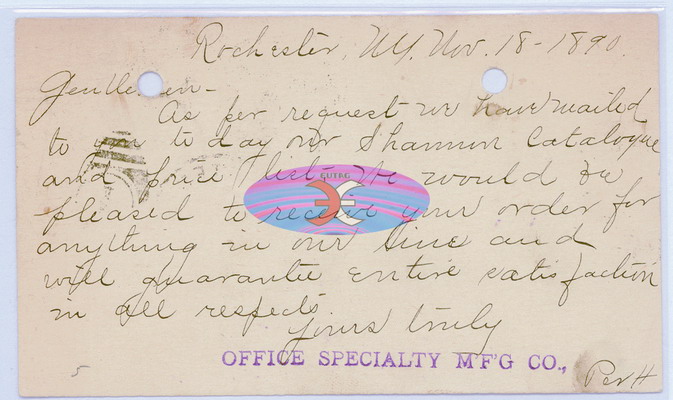 Rochester, N.Y. Nov. 18-1890.
Gentlemen-
As per request we have mailed
to you to day our Shannon Catalogue
and price list. We would be
pleased to receive your order for
anything in our line and
will guarantee entire satisfaction
in all respects.
Yours truly
OFFICE SPECIALTY M'F'G CO.,
Per H
5